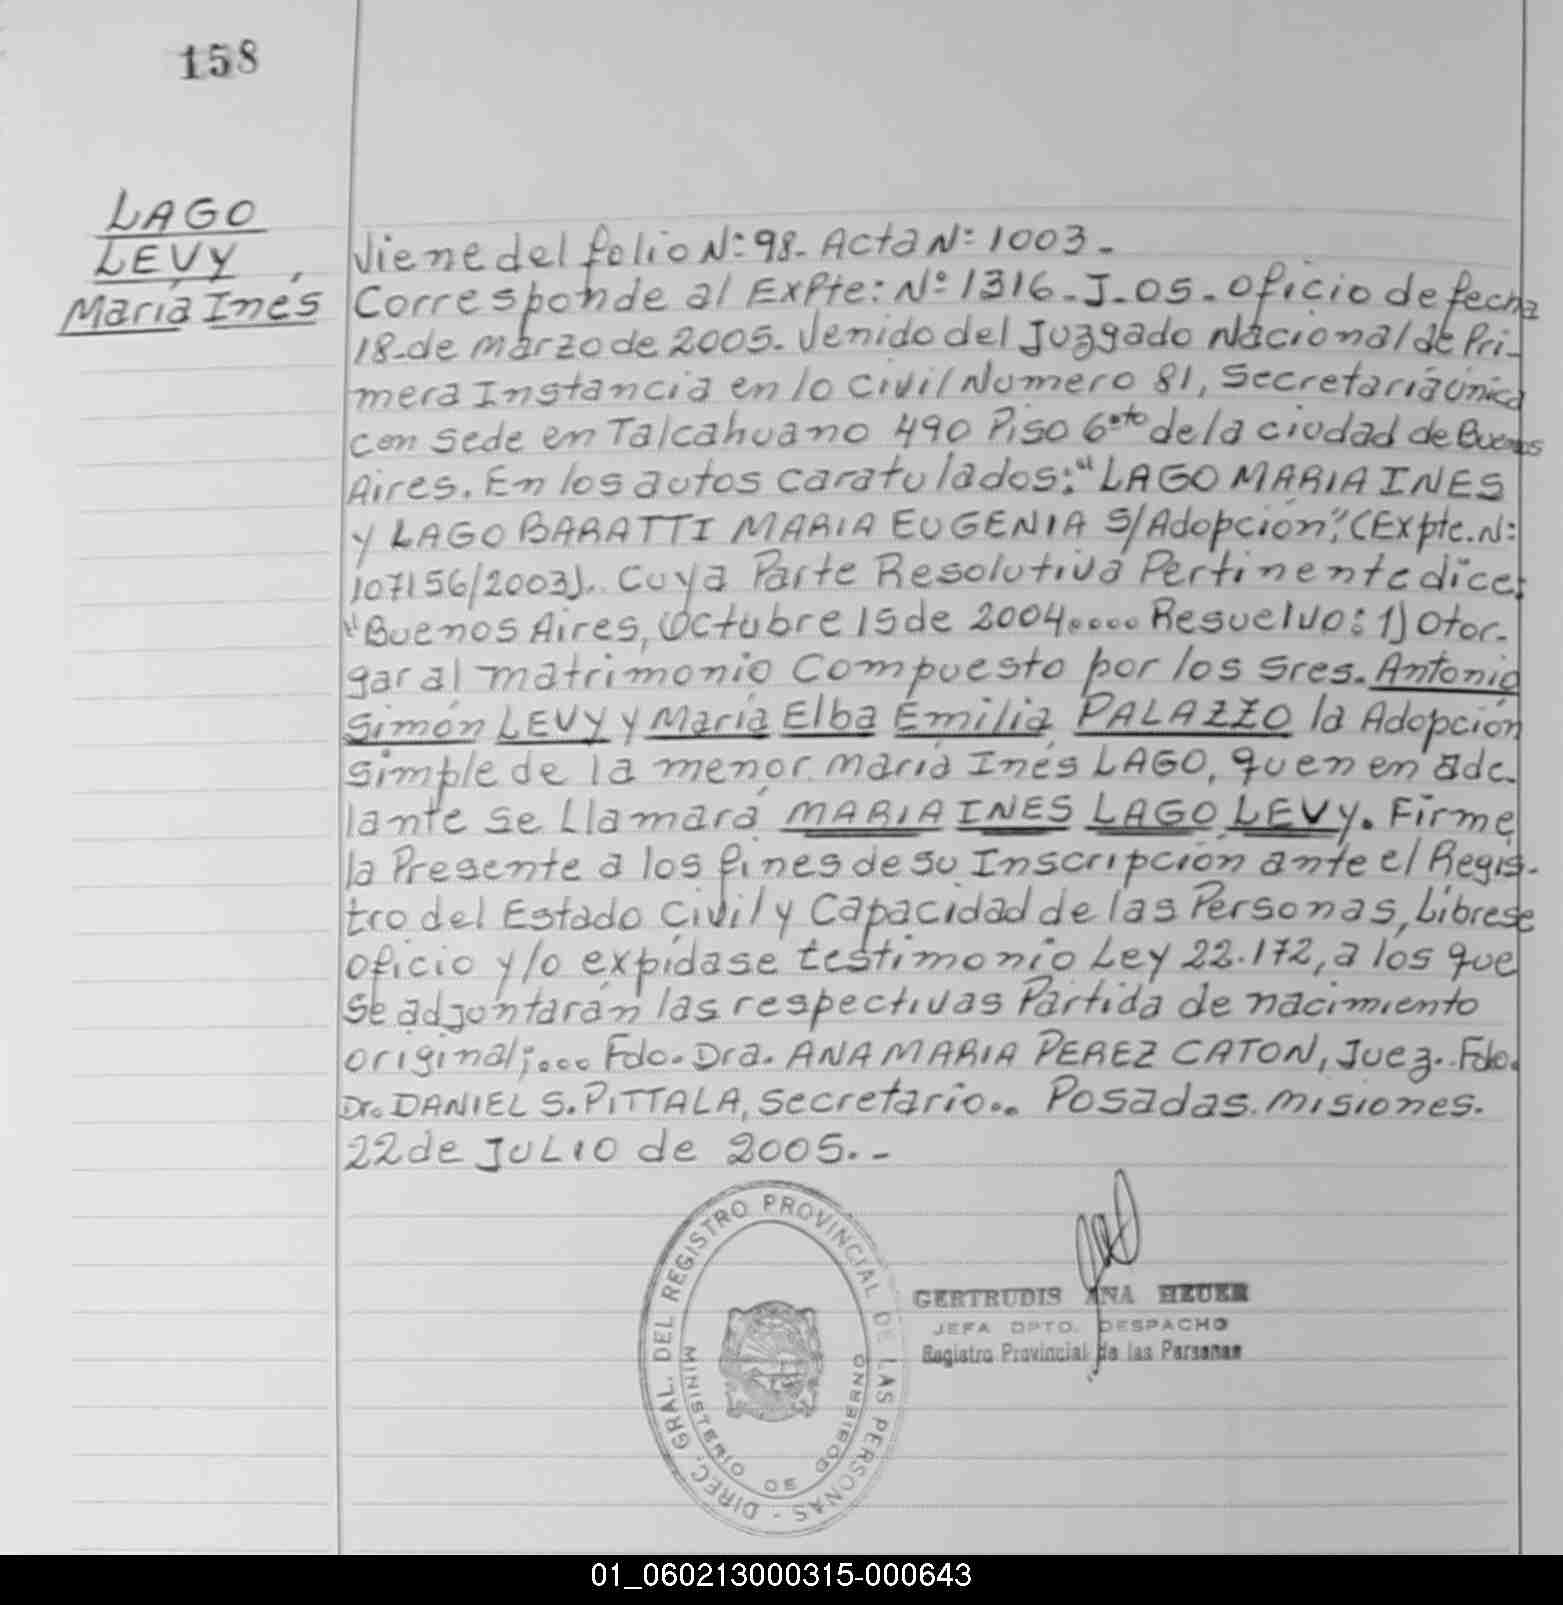 158
LAGO
LEVY,
María Inés
Viene del folio N: 98. Acta N: 1003.
Corresponde al ExPte: Nº 1316.J.05. Oficio de fecha
18.de marzo de 2005. Venido del Juzgado Nacional de Pri-
mera Instancia en lo Civil Numero 81, Secretaría única
con Sede en Talcahuano 490 Piso 6ºto de la ciudad de Buenos
Aires. En los autos caratulados: "LAGO MARIA INES
y LAGO BARATTI MARIA EUGENIA S/Adopción", (Expte. N:
107156/2003).. Cuya Parte Resolutiva Pertinente dice:
"Buenos Aires, Octubre 15 de 2004..... Resuelvo: 1) Otor-
gar al matrimonio Compuesto por los Sres. Antonio
Simón LEVY y María Elba Emilia PALAZZO la Adopción
simple de la menor María Inés LAGO, quen en ade-
lante se Llamará MARIA INES LAGO LEVY. Firme
la Presente a los fines de su Inscripción ante el Regis-
tro del Estado Civil y Capacidad de las Personas, Librese
oficio y/o expídase testimonio Ley 22.172, a los que
se adjuntarán las respectivas Partida de nacimiento
original;... Fdo. Dra. ANA MARIA PEREZ CATON, Juez.. Fdo.
Dr. DANIEL S. PITTALA, Secretario... Posadas. Misiones.
22 de JULIO de 2005. -
DIREC. GRAL. DEL REGISTRO PROVINCIAL DE LAS PERSONAS -
MINISTERIO DE GOBIERNO
GERTRUDIS ANA HEUER
JEFA DPTO. DESPACHO
Registro Provincial de las Personas
01_060213000315-000643